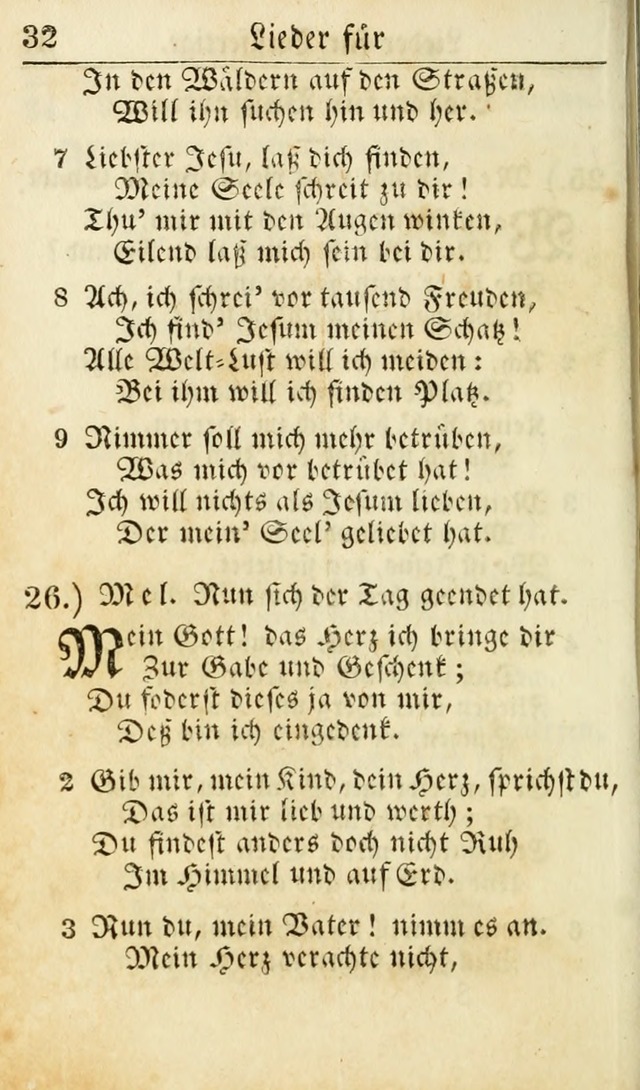 32 Lieder für
In den Wäldern auf den Straßen,
Will ihn suchen hin und her.
7 Liebster Jesu, laß dich finden,
Meine Seele schreit zu dir!
Thu' mir mit den Augen winken,
Eilend laß mich sein bei dir.
8 Ach, ich schrei' vor tausend Freuden,
Ich find' Jesum meinen Schatz!
Alle Welt-Lust will ich meiden:
Bei ihm will ich finden Platz.
9 Nimmer soll mich mehr betrüben,
Was mich vor betrübet hat!
Ich will nichts als Jesum lieben,
Der mein' Seel' geliebet hat.
26.) Mel. Nun sich der Tag geendet hat.
Mein Gott! das Herz ich bringe dir
Zur Gabe und Geschenk;
Du foderst dieses ja von mir,
Deß bin ich eingedenk.
2 Gib mir, mein Kind, dein Herz, sprichst du,
Das ist mir lieb und werth;
Du findest anders doch nicht Ruh
Im Himmel und auf Erd.
3 Nun du, mein Vater! nimm es an.
Mein Herz verachte nicht,